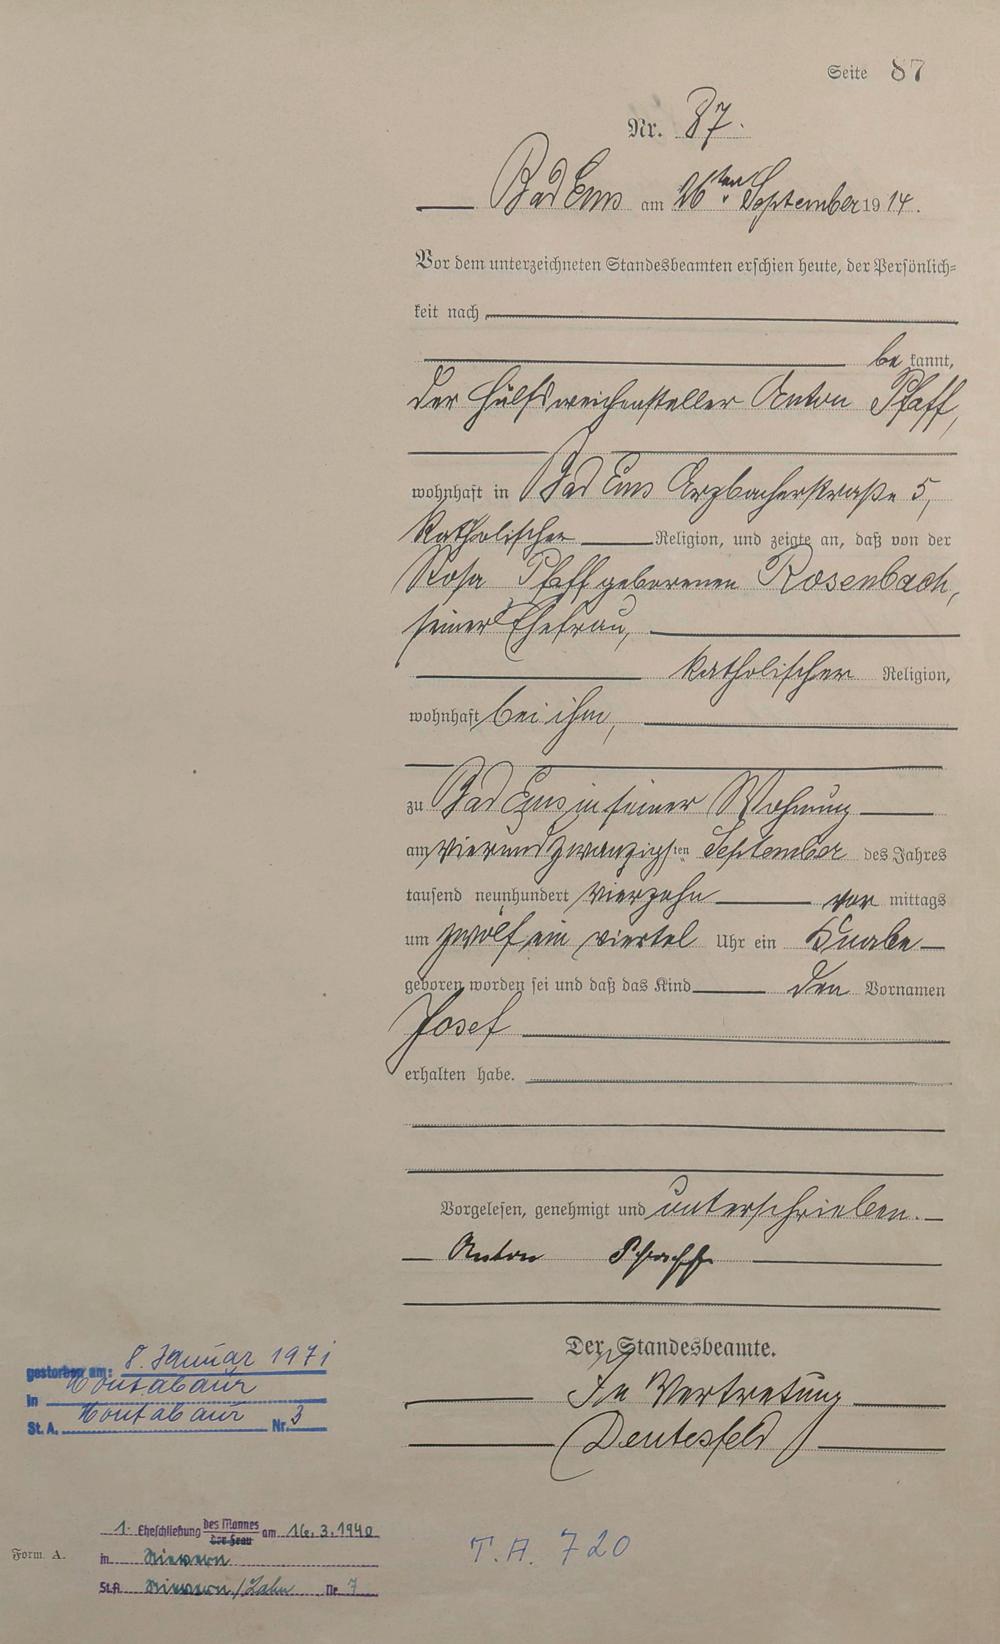 Seite 87
Nr. 87.
Bad Ems am 26ten September 1914.
Vor dem unterzeichneten Standesbeamten erschien heute, der Persönlich-
keit nach
be kannt,
der Hülfsweichensteller Anton Pfaff,
wohnhaft in Bad Ems Arzbacherstraße 5,
katholischer Religion, und zeigte an, daß von der
Rosa Pfaff geborenen Rosenbach,
seiner Ehefrau,
katholischer Religion,
wohnhaft bei ihm,
zu Bad Ems in seiner Wohnung
am vierundzwanzigsten September des Jahres
tausend neunhundert vierzehn vor mittags
um zwölf ein viertel Uhr ein Knabe
geboren worden sei und daß das Kind den Vornamen
Josef
erhalten habe.
Vorgelesen, genehmigt und unterschrieben.
Anton Pfaff
Der Standesbeamte.
In Vertretung
gestorben am: 8. Januar 1971
in Montabaur
St. A. Montabaur Nr. 3
1. Eheschließung des Mannes der Frau am 16.3.1940
in Nievern
St.A. Nievern/Lahn Nr. 7
Form. A.
T.A. 720